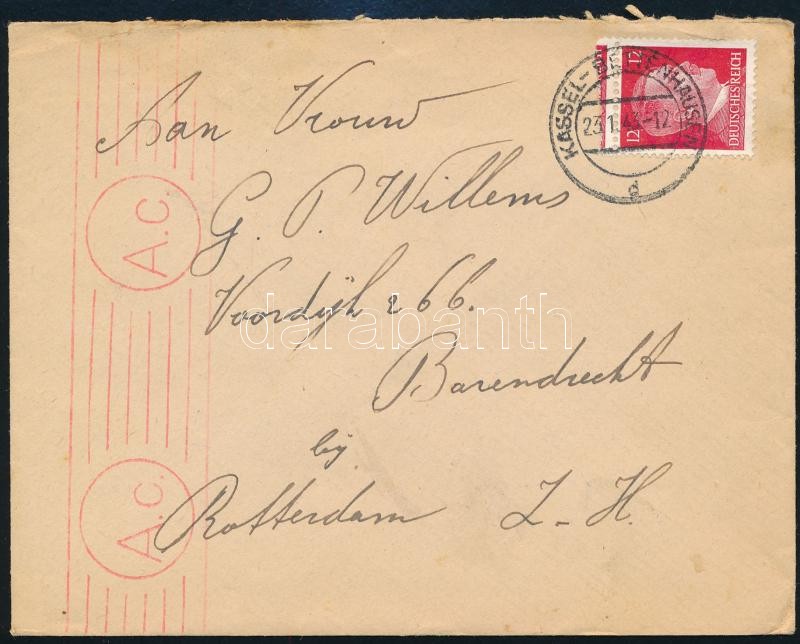 KASSEL-BETTENHAUSEN
23.1.43-12
d
12
12
DEUTSCHES REICH
Aan Vrouw
G. P. Willems
Voordijk 266.
Barendrecht
bij
Rotterdam Z-H.
A.C.
A.C.
darabanth